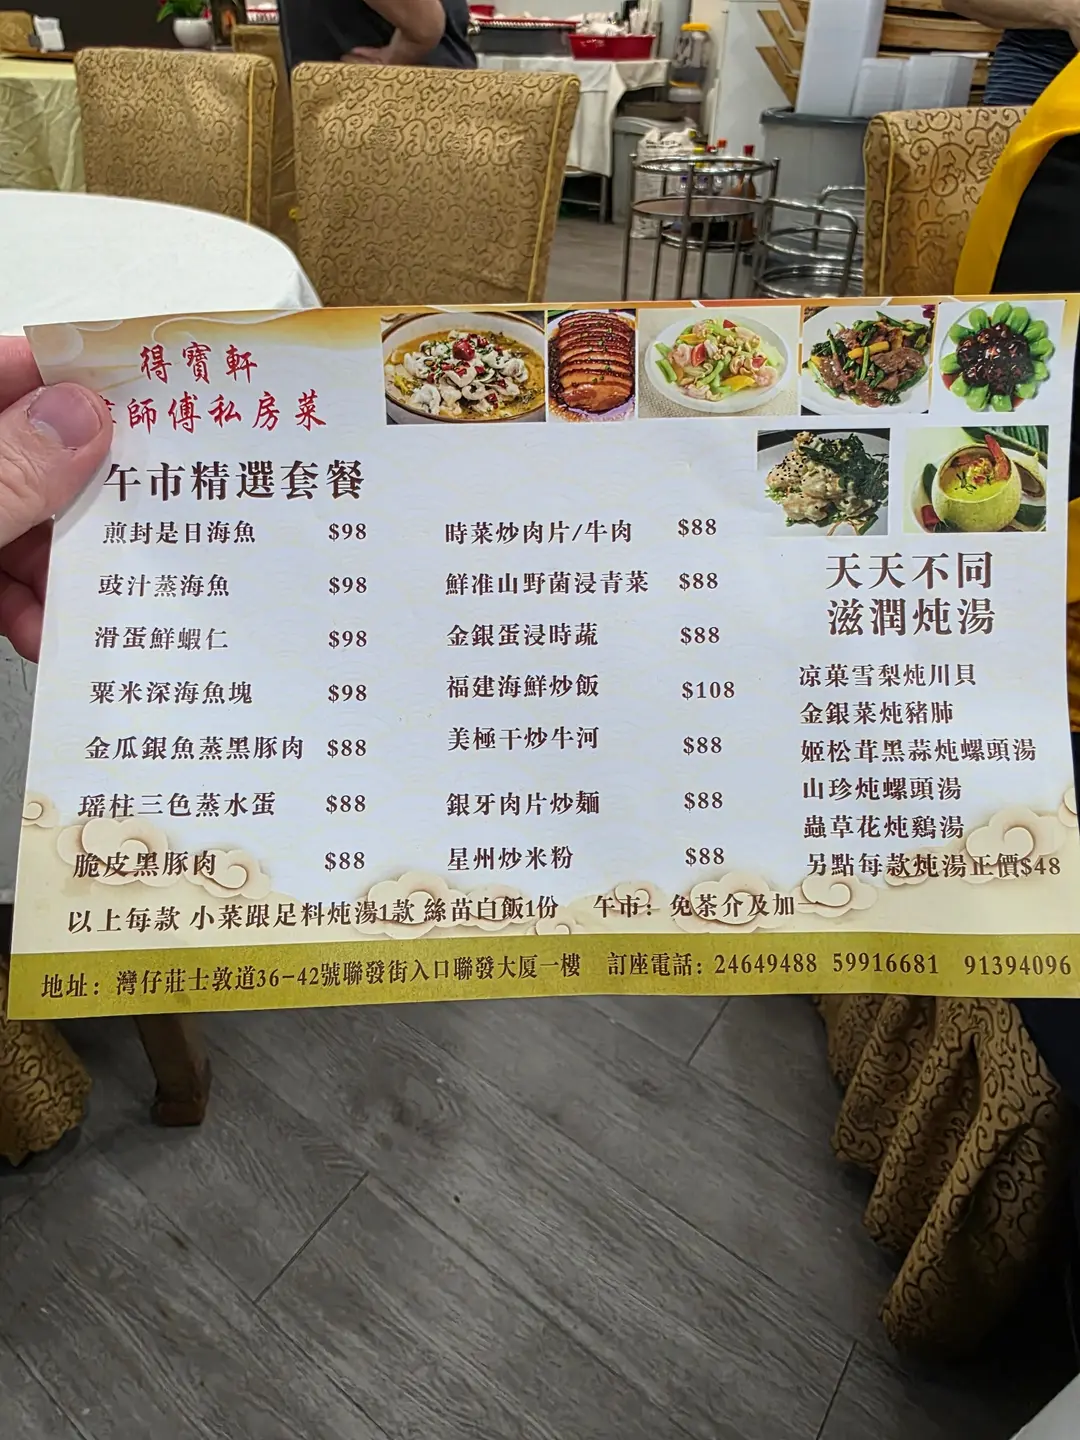 得寶軒
師傅私房菜
午市精選套餐
煎封是日海魚 $98
豉汁蒸海魚 $98
滑蛋鮮蝦仁 $98
粟米深海魚塊 $98
金瓜銀魚蒸黑豚肉 $88
瑶柱三色蒸水蛋 $88
脆皮黑豚肉 $88
時菜炒肉片/牛肉 $88
鮮准山野菌浸青菜 $88
金銀蛋浸時蔬 $88
福建海鮮炒飯 $108
美極干炒牛河 $88
銀牙肉片炒麵 $88
星州炒米粉 $88
天天不同
滋潤炖湯
凉菓雪梨炖川貝
金銀菜炖豬肺
姬松茸黑蒜炖螺頭湯
山珍炖螺頭湯
蟲草花炖鷄湯
另點每款炖湯正價$48
以上每款 小菜跟足料炖湯1款 絲苗白飯1份 午市：免茶介及加一
地址：灣仔莊士敦道36-42號聯發街入口聯發大厦一樓 訂座電話：24649488 59916681 91394096